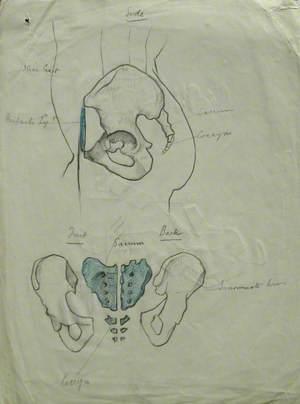 Side
Iliac Crest
Poupart's Lig.t
Sacrum
Coccyx
Front
Sacrum
Back
Innominate bone
Coccyx